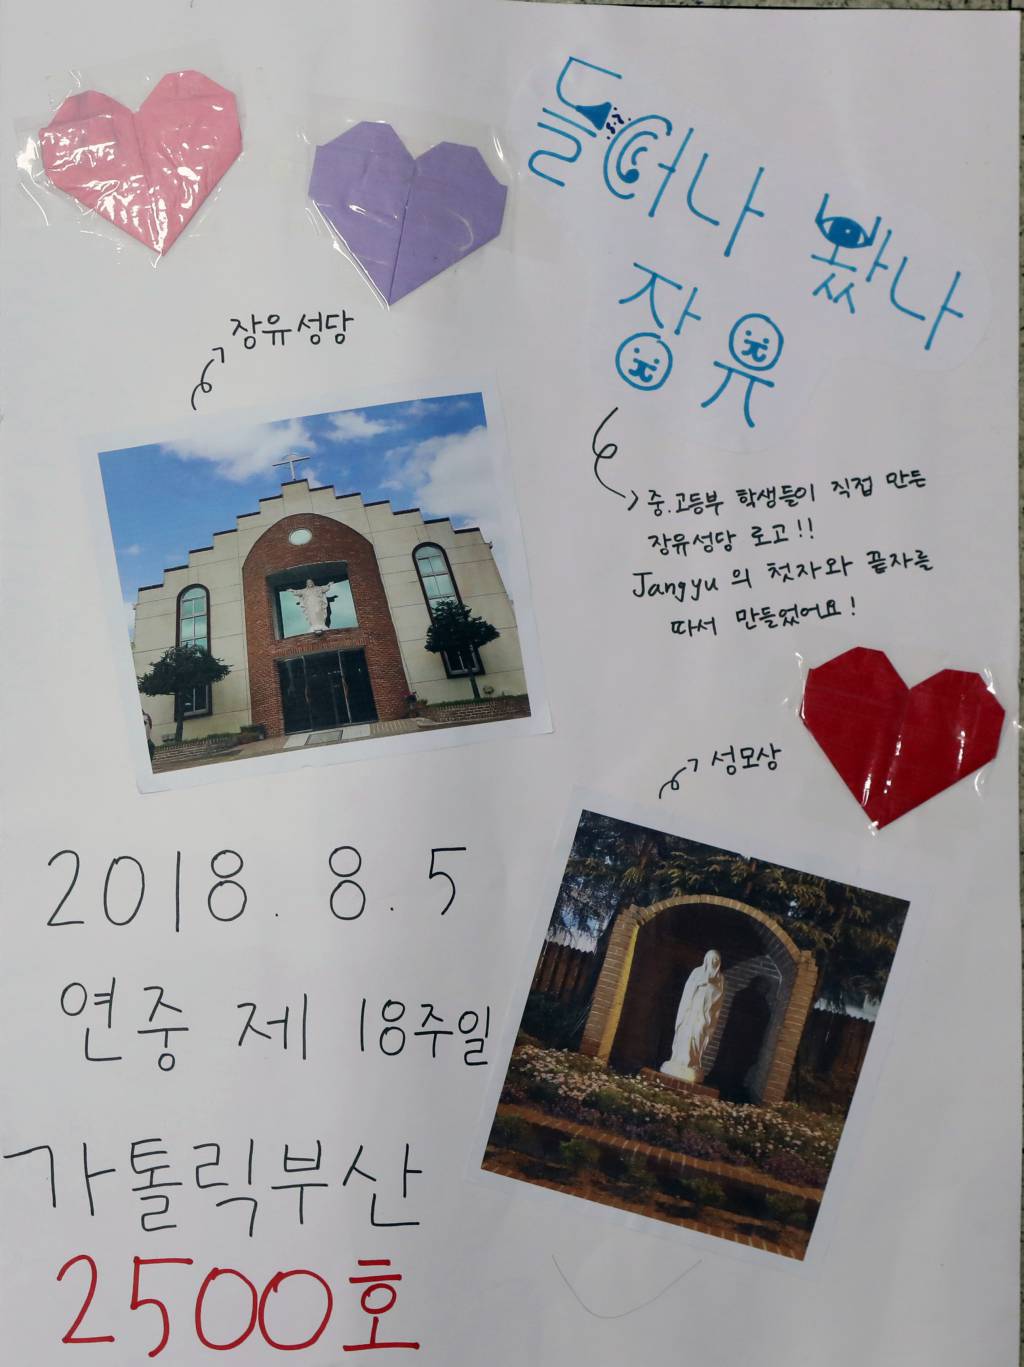 들어나 봤나
장유
장유성당
중.고등부 학생들이 직접 만든
장유성당 로고!!
Jangyu의 첫자와 끝자를
따서 만들었어요!
성모상
2018. 8. 5
연중 제 18주일
가톨릭부산
2500호